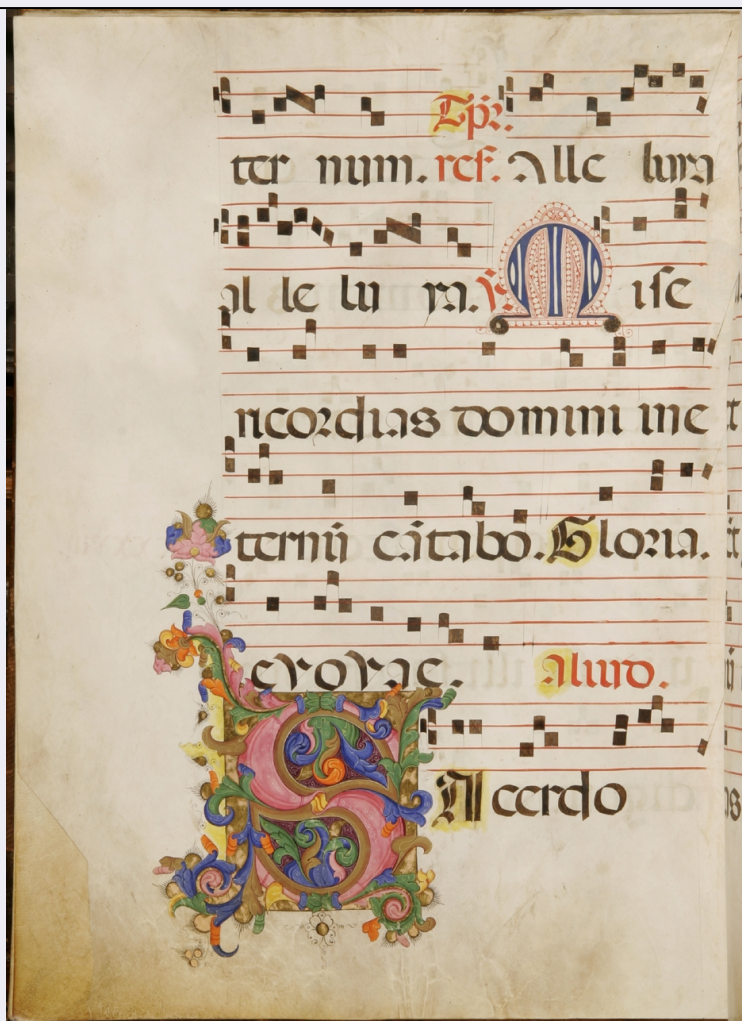 ter num. Tp̄r. res. Alle luya
al le lu ya. ℣. Mise
ricordias domini ine
ternū cātabo. Gloria.
evovae. Aliud.
SAcerdo